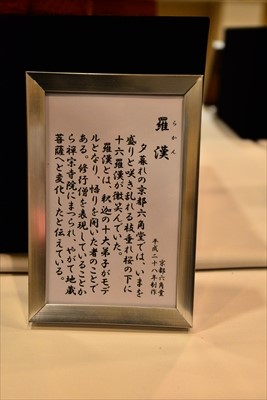 らかん
羅漢
平成二十八年制作
京都六角堂
夕暮れの京都六角堂では、いまを
盛りと咲き乱れる枝垂れ桜の下に
十六羅漢が微笑んでいた。
羅漢とは、釈迦の十大弟子がモデ
ルとなり、悟りを開いた者のことで
ある。修行僧を表現していることか
ら禅宗寺院にまつられ、やがて地蔵
菩薩へと変化したと伝えている。